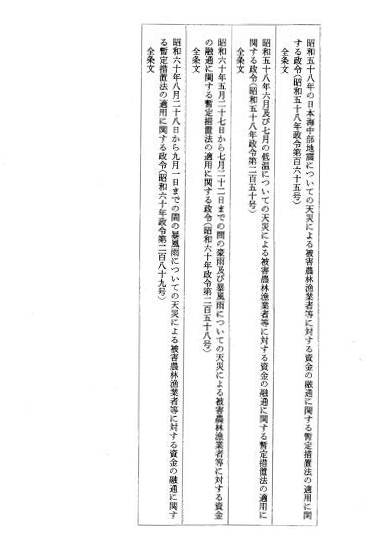 昭和五十八年の日本海中部地震についての天災による被害農林漁業者等に対する資金の融通に関する暫定措置法の適用に関
する政令(昭和五十八年政令第百六十五号)
全条文
昭和五十八年六月及び七月の低温についての天災による被害農林漁業者等に対する資金の融通に関する暫定措置法の適用に
関する政令(昭和五十八年政令第二百五十号)
全条文
昭和六十年五月二十七日から七月二十二日までの間の豪雨及び暴風雨についての天災による被害農林漁業者等に対する資金
の融通に関する暫定措置法の適用に関する政令(昭和六十年政令第二百五十八号)
全条文
昭和六十年八月二十八日から九月一日までの間の暴風雨についての天災による被害農林漁業者等に対する資金の融通に関す
る暫定措置法の適用に関する政令(昭和六十年政令第二百八十九号)
全条文